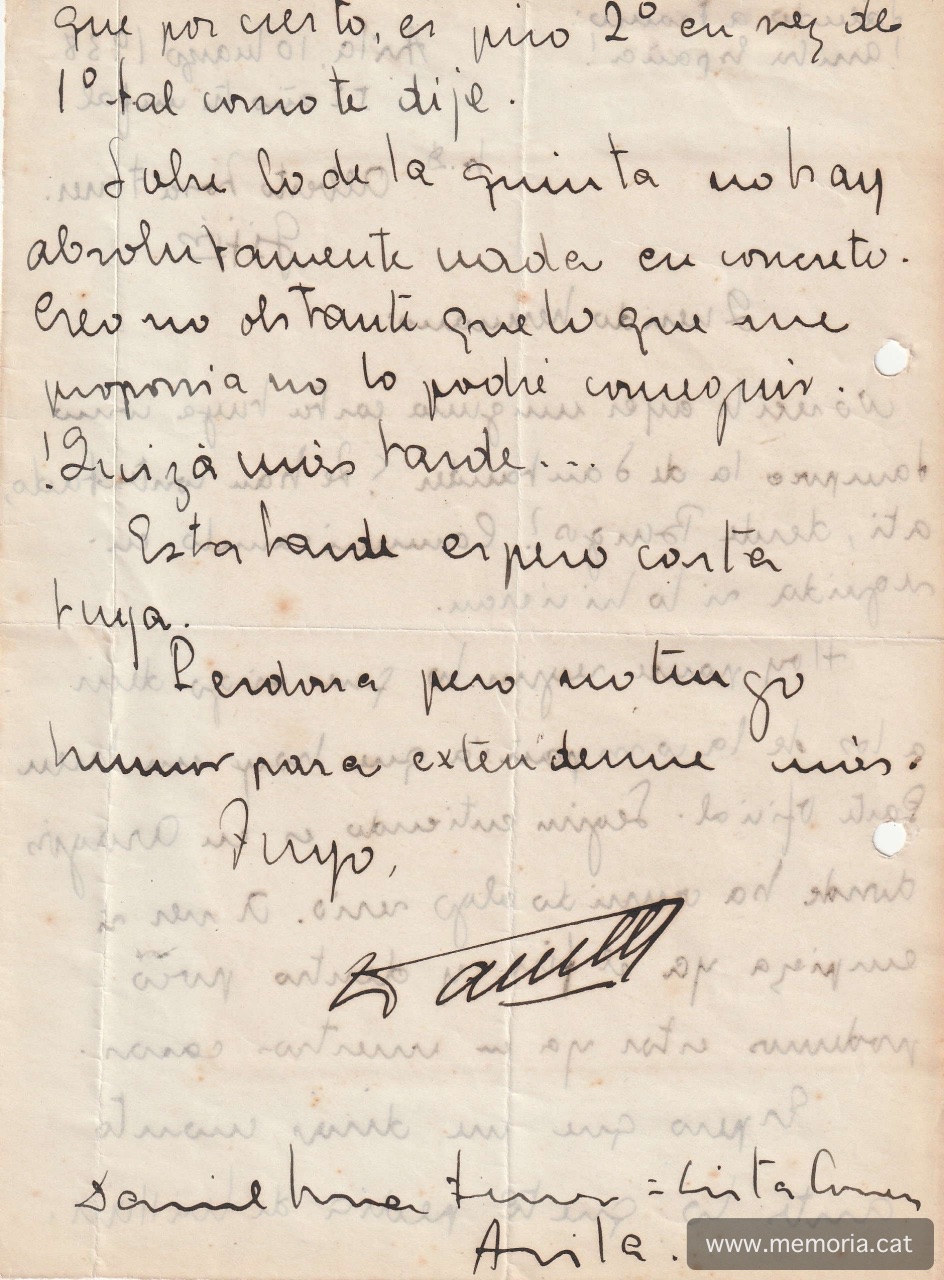 que por cierto, es piso 2º en vez de
1º tal como te dije.
Sobre lo de la quinta no hay
absolutamente nada en concreto.
Creo no obstante que lo que me
proponia no lo podré conseguir.
!Quizá más tarde...
Esta tarde espero carta
tuya.
Perdona pero no tengo
humor para extenderme más.
Tuyo,
Daniel
Daniel = Lista Correos
Avila.
www.memoria.cat